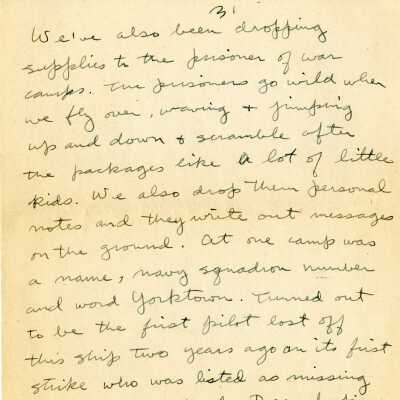 3'
We've also been dropping
supplies to the prisoner of war
camps. The prisoners go wild when
we fly over, waving & jumping
up and down & scramble after
the packages like a lot of little
kids. We also drop them personal
notes and they write out messages
on the ground. At one camp was
a name, navy squadron number
and word Yorktown. Turned out
to be the first pilot lost off
this ship two years ago on its first
strike who was listed as missing